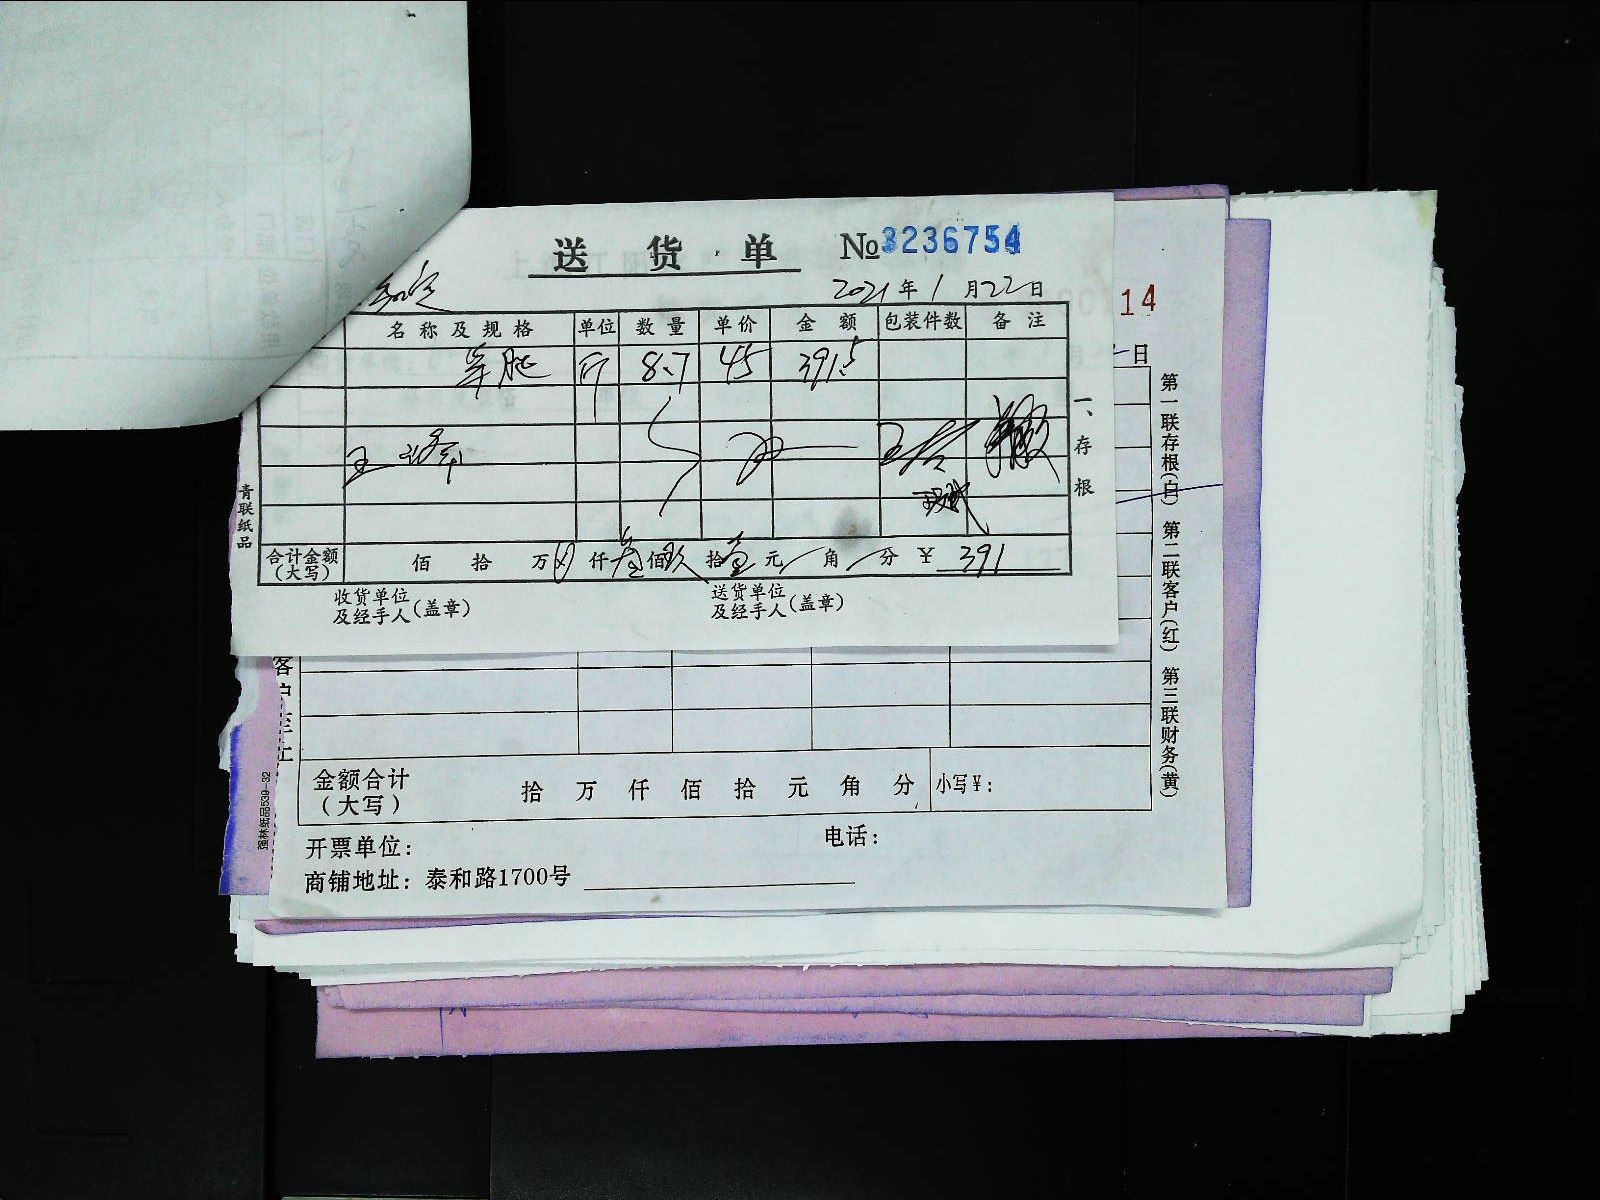 送货单 №3236754
2021年1月22日
名称及规格 单位 数量 单价 金额 包装件数 备注
羊腿 斤 8.7 45 391.5
一、存根
青联纸品
合计金额(大写) 佰 拾 万 仟叁佰玖拾壹元 角 分 ¥391
收货单位及经手人(盖章)
送货单位及经手人(盖章)
14
日
第一联存根(白) 第二联客户(红) 第三联财务(黄)
金额合计(大写) 拾 万 仟 佰 拾 元 角 分 小写¥:
开票单位: 电话:
商铺地址: 泰和路1700号
强林纸品539-32